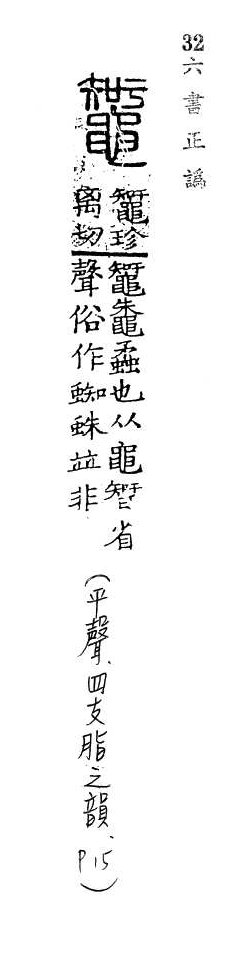 32 六書正譌
𪓿
𪓿珍
离切
𪓿鼄蟊也从黽𥏼省
聲俗作蜘蛛並非
(平聲、四支脂之韻、P15)